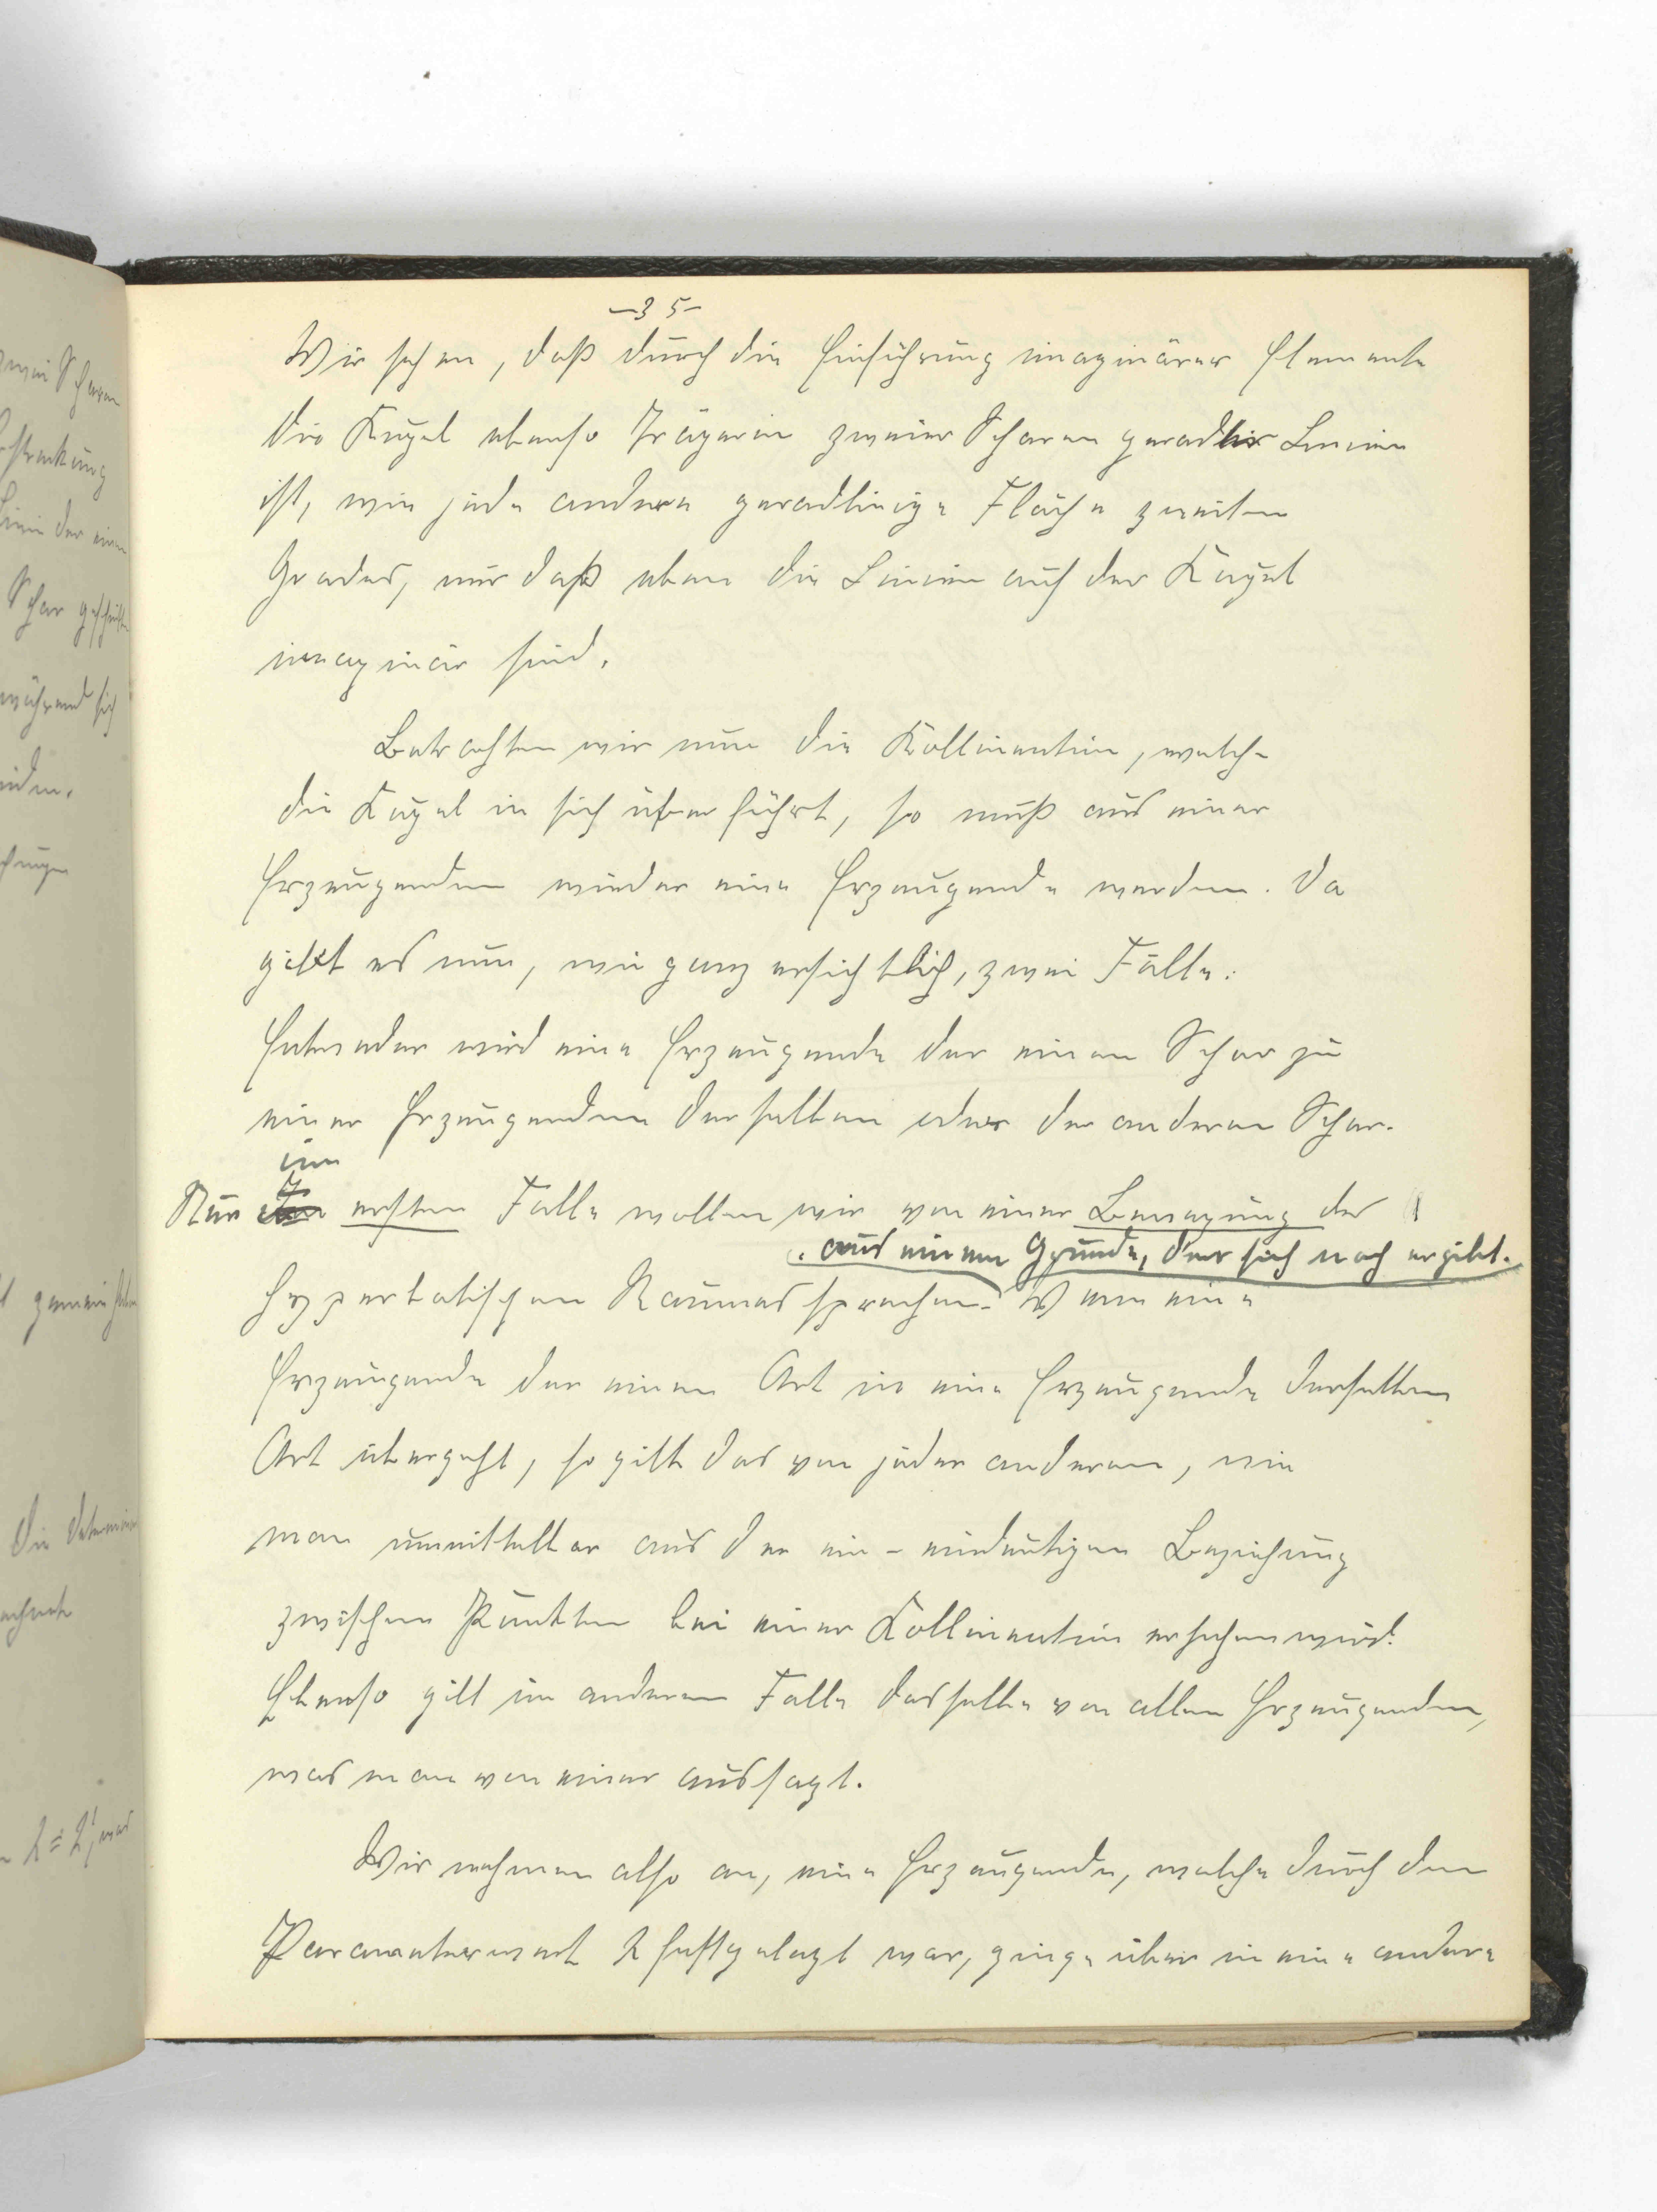 -35-
Wir sehen, daß durch die Einführung imaginärer Elemente
die Kugel ebenso Trägerin zweier Scharen gerader Linien
ist, wie jede andere geradlinige Fläche zweiten
Grades, nur daß eben die Linien auf der Kugel
imaginär sind.
Betrachten wir nun die Kollineation, welche
die Kugel in sich überführt, so muß aus einer
Erzeugenden wieder eine Erzeugende werden. Da
gibt es nun, wie ganz ersichtlich, zwei Fälle:
Entweder wird eine Erzeugende der einen Schar zu
einer Erzeugenden derselben oder der anderen Schar.
im
Nur ersten Falle wollen wir von einer Bewegung des
aus einem Grunde, der sich noch ergibt.
hyperbolischen Raumes sprechen. Wenn eine
Erzeugende der einen Art in eine Erzeugende derselben
Art übergeht, so gilt das von jeder anderen, wie
man unmittelbar aus der ein-eindeutigen Beziehung
zwischen Punkten bei einer Kollineation ersehen wird.
Ebenso gilt im anderen Falle dasselbe von allen Erzeugenden,
was man von einer aussagt.
Wir nehmen also an, eine Erzeugende, welche durch den
Parameterwert λ festgelegt war, ginge über in eine andere
zwei Scharen
der einen
Schar
während sich
λ = λ', was